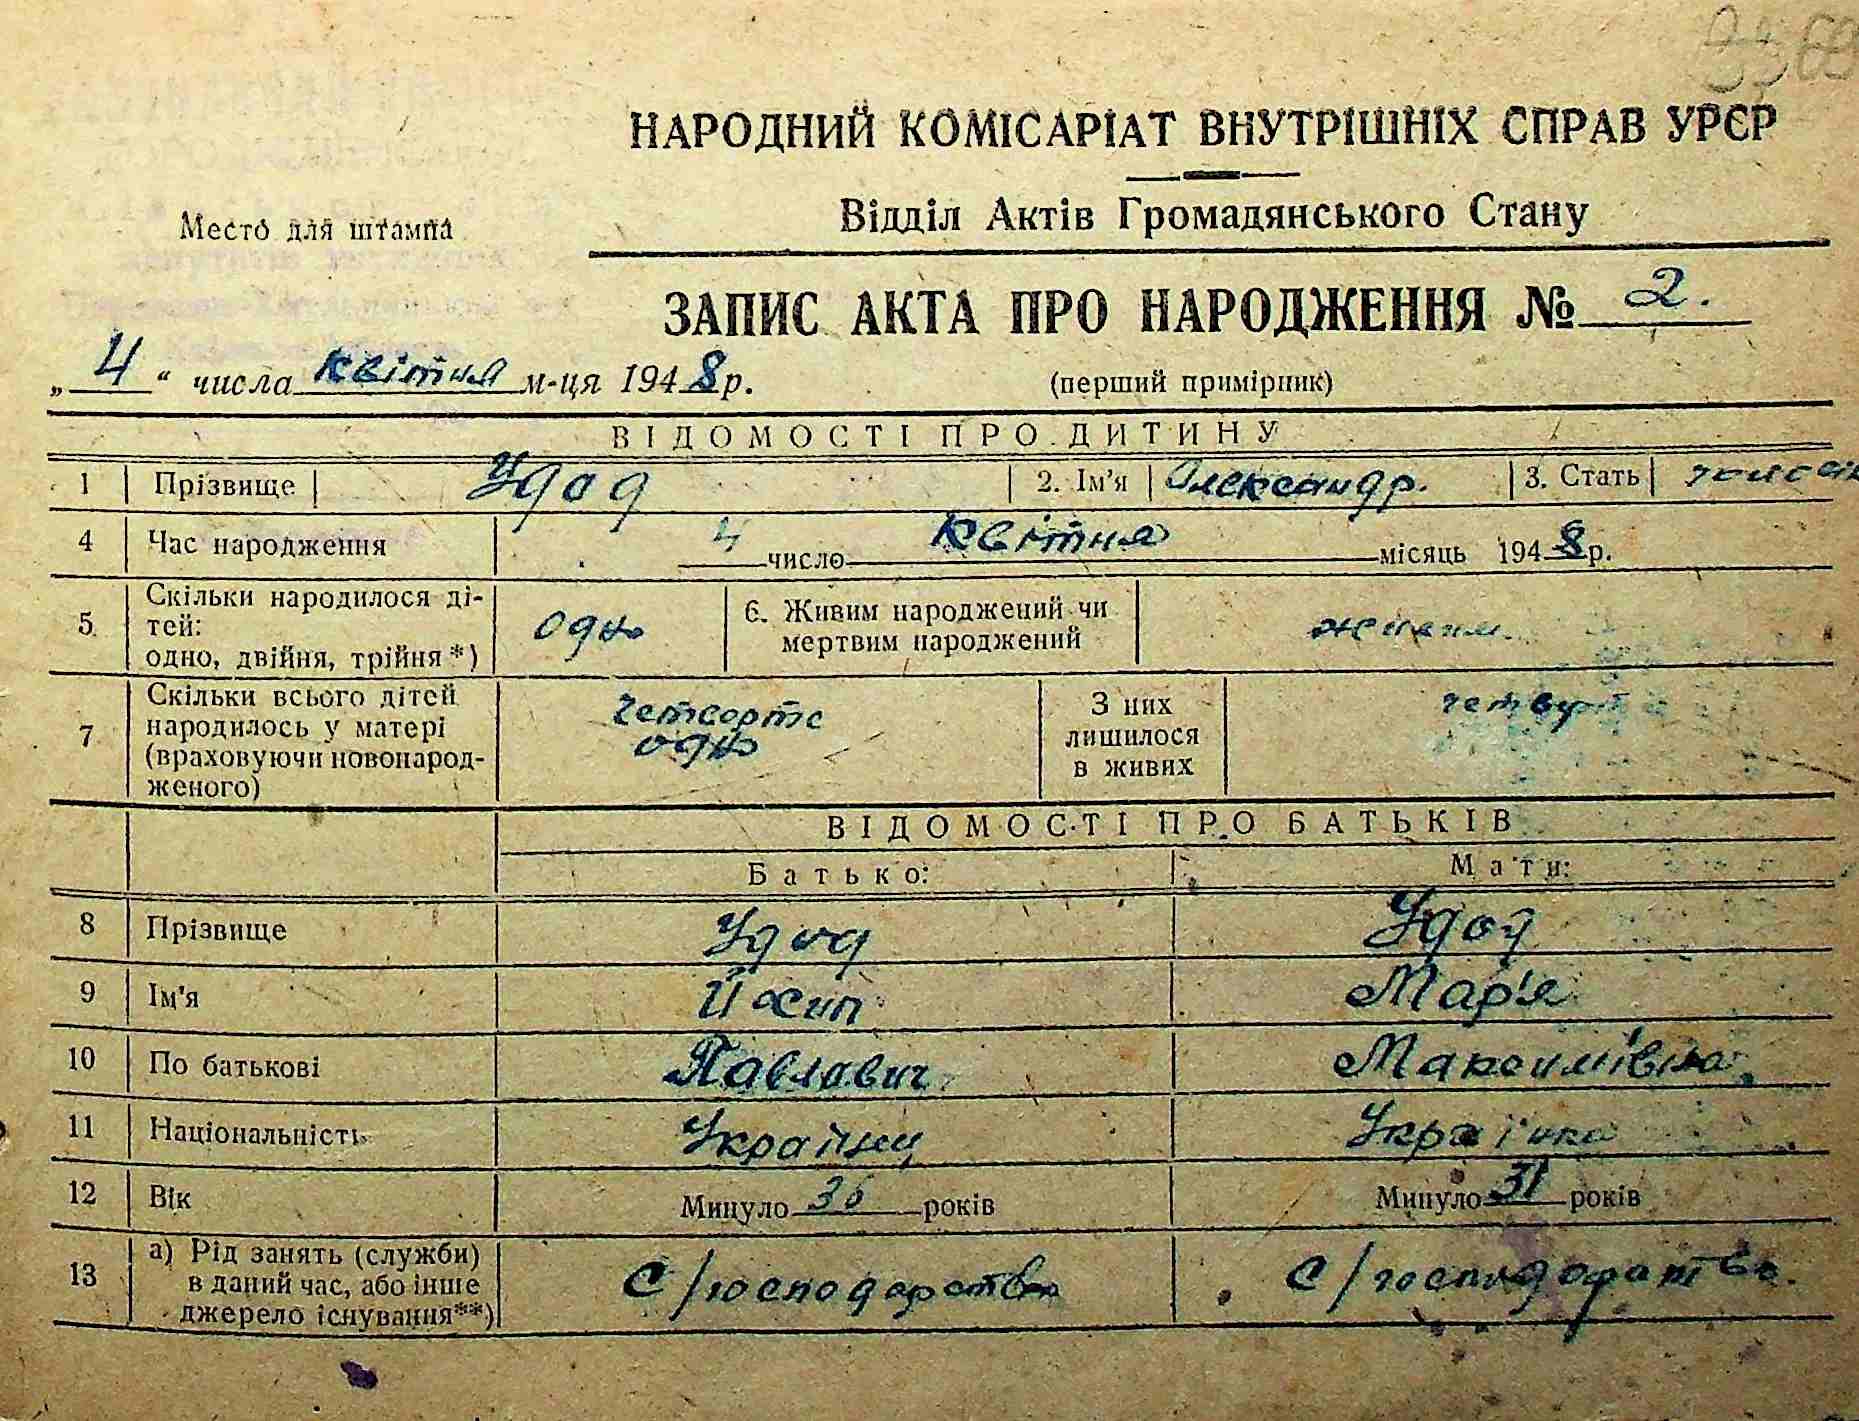 НАРОДНИЙ КОМІСАРІАТ ВНУТРІШНІХ СПРАВ УРСР
Відділ Актів Громадянського Стану
Место для штампа
ЗАПИС АКТА ПРО НАРОДЖЕННЯ № 2.
„ 4 “ числа квітня м-ця 1948 р.
(перший примірник)
ВІДОМОСТІ ПРО ДИТИНУ
1 Прізвище Удод 2. Ім'я Олександр. 3. Стать
4 Час народження 4 число квітня місяць 1948 р.
5 Скільки народилося ді-
тей:
одно, двійня, трійня *) одно 6. Живим народжений чи
мертвим народжений живим.
7 Скільки всього дітей
народилось у матері
(враховуючи новонарод-
женого) четверте
одно
З них
лишилося
в живих
ВІДОМОСТІ ПРО БАТЬКІВ
Батько: Мати:
8 Прізвище Удод Удод
9 Ім'я Йосип Мар'я
10 По батькові Павлавич Максимівна
11 Національність Українец Українка
12 Вік Минуло 36 років Минуло 31 років
13 а) Рід занять (служби)
в даний час, або інше
джерело існування**) С/господарство С/господарство.